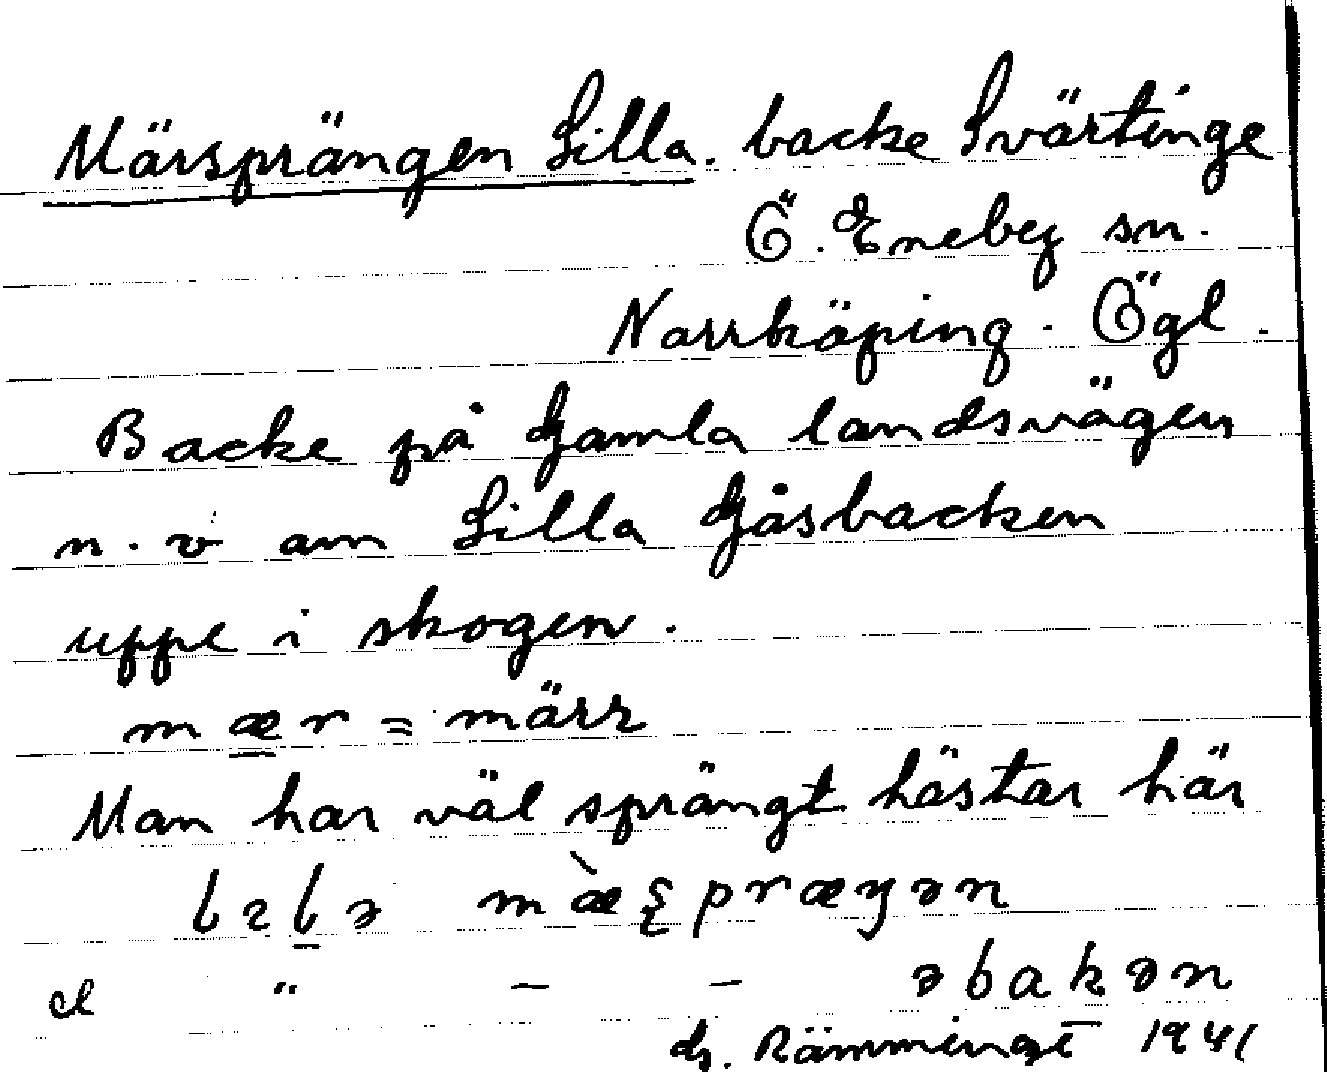 Märsprängen Lilla. backe Svärtinge
Ö. Eneby sn.
Norrköping. Ögl.
Backe på Gamla landsvägen
n.v om Lilla Gåsbacken
uppe i skogen.
mær = märr
Man har väl sprängt hästar här
mæ̀ʂpræŋən
el " — — əbakən
1941